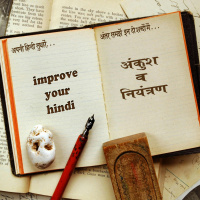 अपनी हिन्दी सुधारें...
improve
your
hindi
अंतर समझें इन दो शब्दों में...
अंकुश
व
नियंत्रण